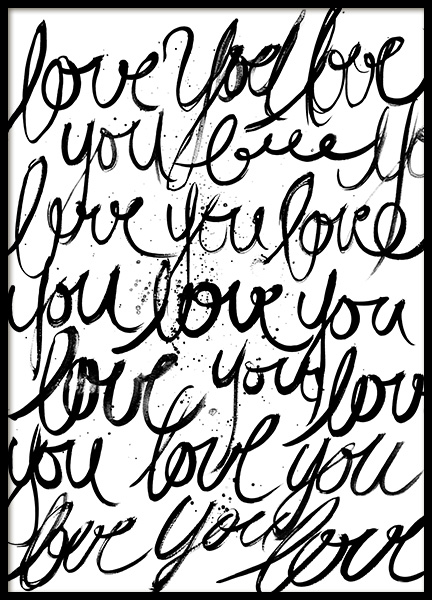 love you love
you love yo
love you love
you love you
love you lov
you love you
love you love